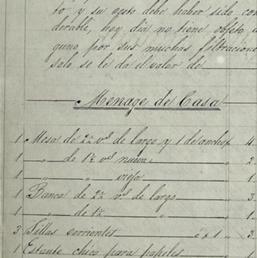 to y su gasto debe haber sido con
derable, hoy dia no tiene objeto al
guno por sus muchas filtracione
solo se le da el valor de
Menage de Casa
1 Mesa de 2½ vs de largo y 1 de ancho 4
1 " de 1½ vs nueva
1 " " vieja
1 Banca de 2½ vs de largo 3
1 " de 1½ " 1
3 Sillas corrientes á 1 3
1 Estante chico para papeles